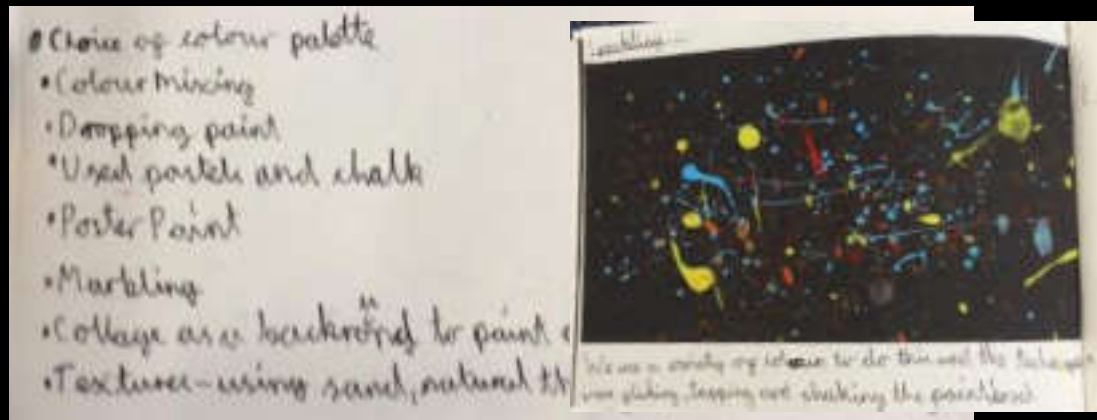 Choice of colour palette
• Colour Mixing
• Dropping paint
• Used pastels and chalk
• Poster Paint
• Marbling
• Collage as a backround to paint
• Textures - using sand, natural th
We use a variety of colour to do this and the
tapping and shaking the paintbrush